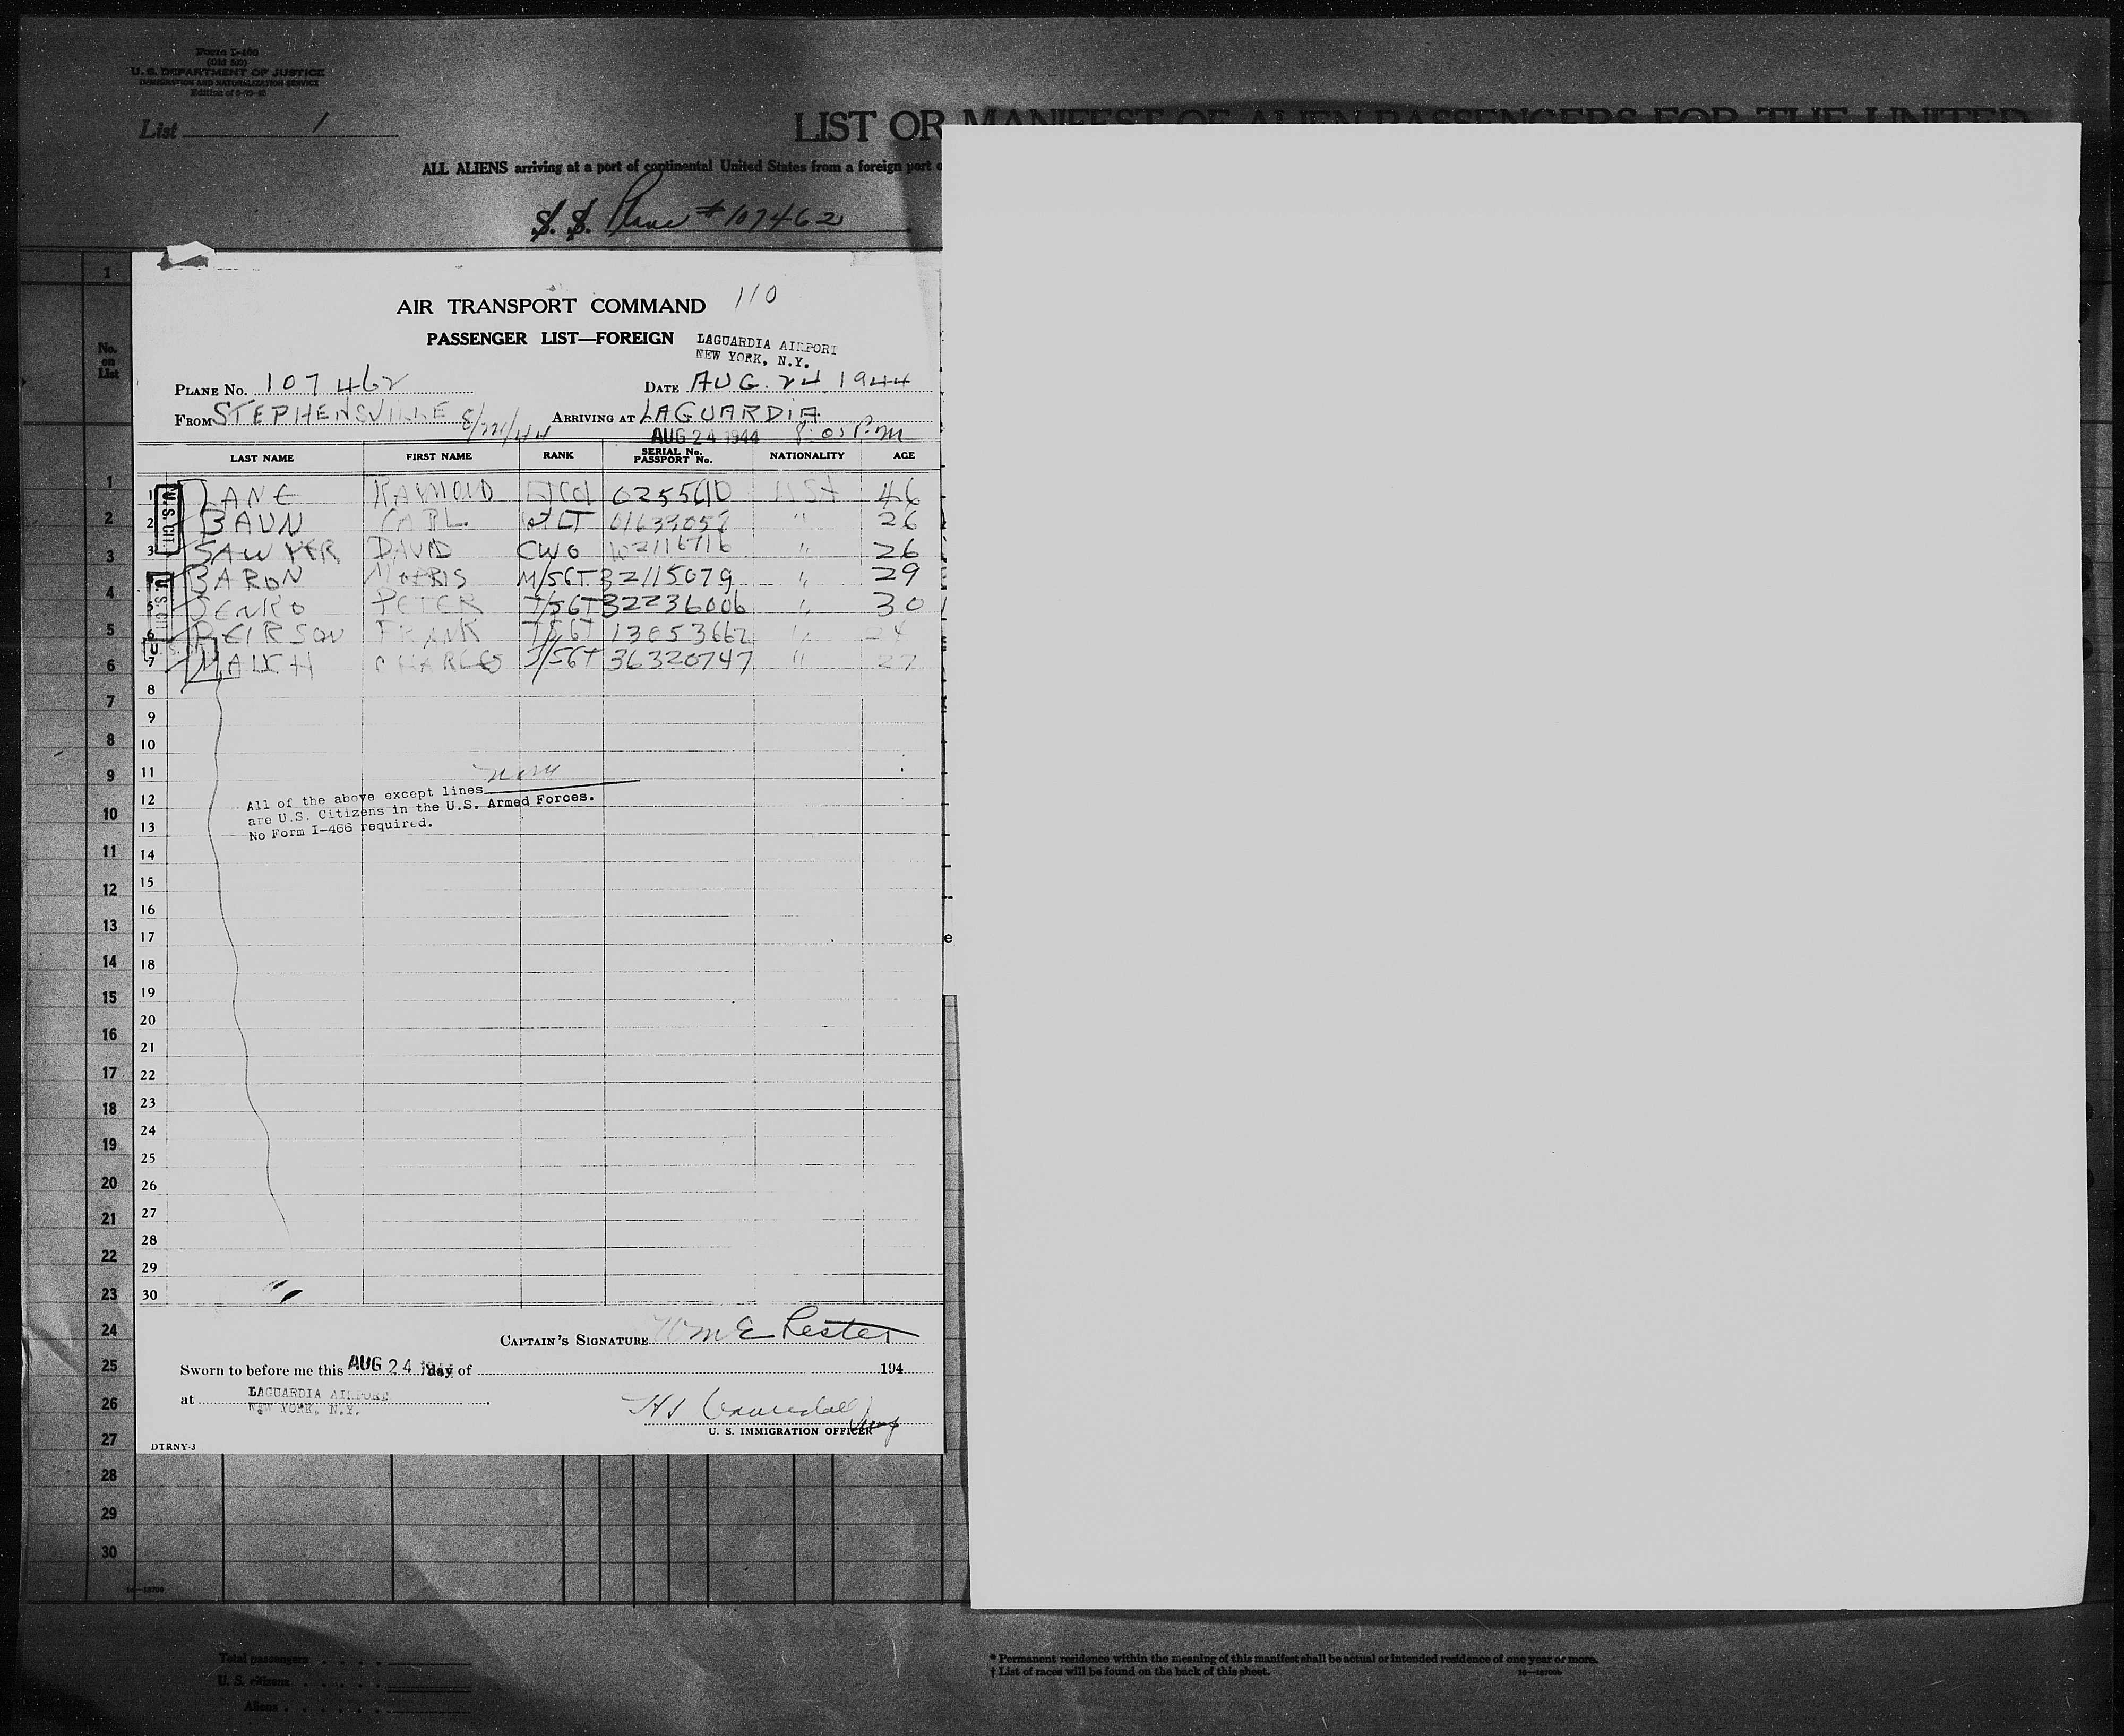 Form I-466
(Old 500)
U. S. DEPARTMENT OF JUSTICE
IMMIGRATION AND NATURALIZATION SERVICE
Edition of
List 1
LIST OR MANIFEST OF ALIEN PASSENGERS FOR THE UNITED
ALL ALIENS arriving at a port of continental United States from a foreign port
S. S. Plane # 107462
No. on List
AIR TRANSPORT COMMAND 110
PASSENGER LIST—FOREIGN
LAGUARDIA AIRPORT
NEW YORK, N.Y.
PLANE No. 107462 DATE AUG. 24 1944
FROM STEPHENSVILLE 8/24/44 ARRIVING AT LAGUARDIA
AUG 24 1944 8:05 P.M
LAST NAME FIRST NAME RANK SERIAL No. PASSPORT No. NATIONALITY AGE
1 LANE RAYMOND USA 46
2 BAUN CARL 2LT " 26
3 SAWYER DAVID CWO " 26
4 BARON MORRIS M/SGT 32115079 " 29
5 PETER T/SGT 32236006 " 30
6 PEIRSON FRANK T/SGT 13053662 "
7 CHARLES S/SGT 36320747 " 27
U.S. CIT.
8
9
10
11
12
13
14
15
16
17
18
19
20
21
22
23
24
25
26
27
28
29
30
none
All of the above except lines
are U.S. Citizens in the U.S. Armed Forces.
No Form I-466 required.
CAPTAIN'S SIGNATURE Wm E Lester
Sworn to before me this AUG 24 1944 day of 194
at LAGUARDIA AIRPORT
NEW YORK, N.Y.
U. S. IMMIGRATION OFFICER
DTRNY-3
1
2
3
4
5
6
7
8
9
10
11
12
13
14
15
16
17
18
19
20
21
22
23
24
25
26
27
28
29
30
Total passengers
U. S. citizens
Aliens
* Permanent residence within the meaning of this manifest shall be actual or intended residence of one year or more.
† List of races will be found on the back of this sheet.